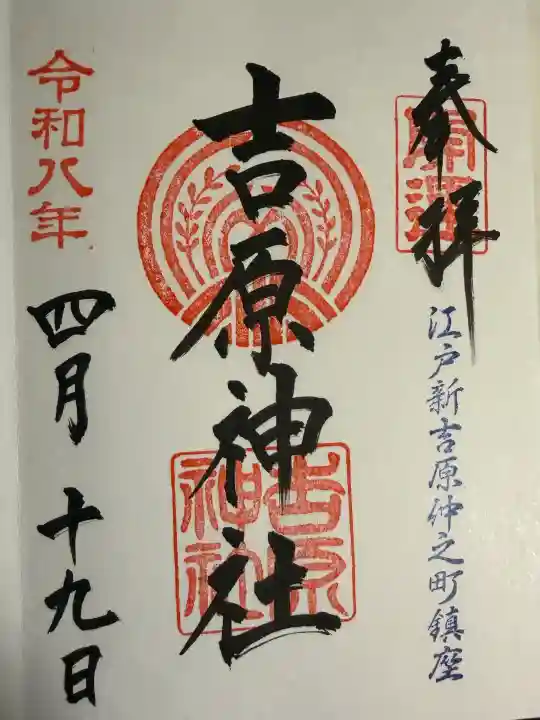 奉拝
開運
江戸新吉原仲之町鎮座
吉原神社
吉原神社
令和八年
四月十九日